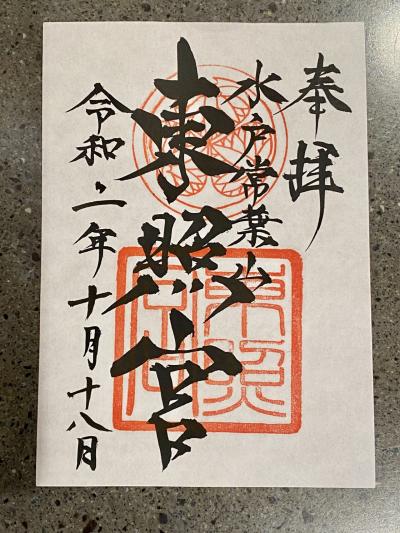 奉拝
水戸常葉山
東照宮
令和二年十月十八日
東照
宮